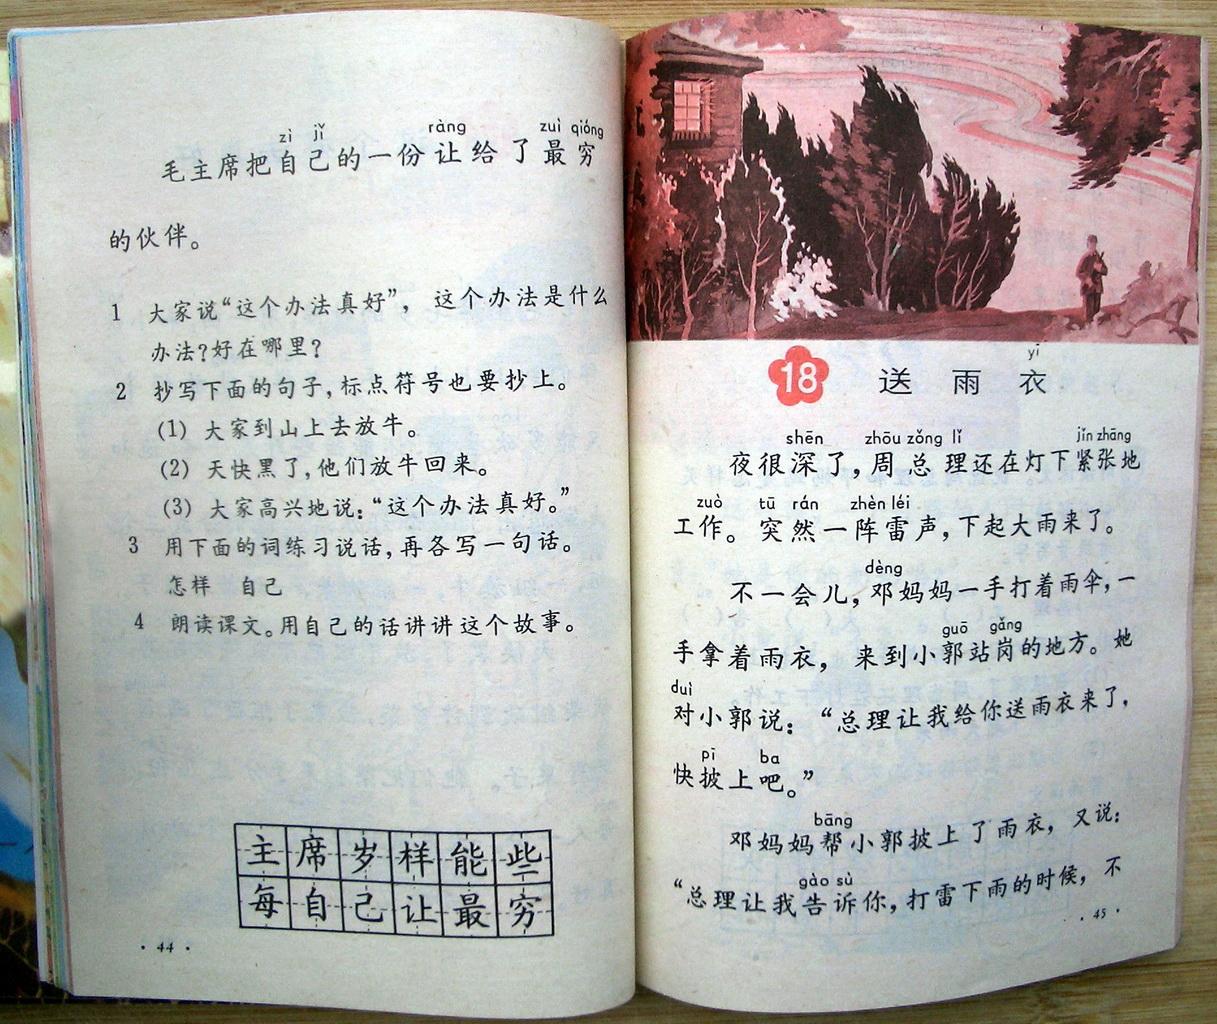 zì jǐ ràng zuì qióng
毛主席把自己的一份让给了最穷
的伙伴。
1 大家说“这个办法真好”，这个办法是什么
办法？好在哪里？
2 抄写下面的句子，标点符号也要抄上。
(1) 大家到山上去放牛。
(2) 天快黑了，他们放牛回来。
(3) 大家高兴地说：“这个办法真好。”
3 用下面的词练习说话，再各写一句话。
怎样 自己
4 朗读课文。用自己的话讲讲这个故事。
主席岁样能些
每自己让最穷
· 44 ·
yī
18 送雨衣
shēn zhōu zǒng lǐ jǐn zhāng
夜很深了，周总理还在灯下紧张地
zuò tū rán zhèn léi
工作。突然一阵雷声，下起大雨来了。
dèng
不一会儿，邓妈妈一手打着雨伞，一
guō gǎng
手拿着雨衣，来到小郭站岗的地方。她
duì
对小郭说：“总理让我给你送雨衣来了，
pī ba
快披上吧。”
bāng
邓妈妈帮小郭披上了雨衣，又说：
gào sù
“总理让我告诉你，打雷下雨的时候，不
· 45 ·